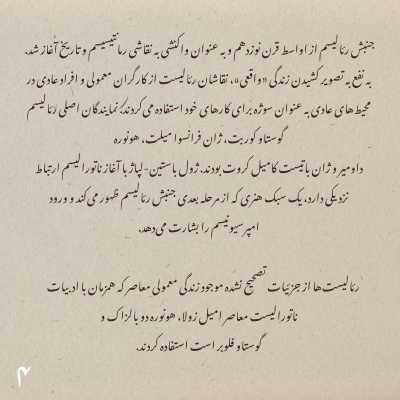 جنبش رئالیسم از اواسط قرن نوزدهم و به عنوان واکنشی به نقاشی رمانتیسیسم و تاریخ آغاز شد.
به نفع به تصویر کشیدن زندگی «واقعی»، نقاشان رئالیست از کارگران معمولی و افراد عادی در
محیط های عادی به عنوان سوژه برای کارهای خود استفاده می‌کردند. نمایندگان اصلی رئالیسم
گوستاو کوربت، ژان فرانسوا میلت، هونوره
داومیر و ژان باتیست کامیل کروت بودند. ژول باستین-لپاژ با آغاز ناتورالیسم ارتباط
نزدیکی دارد، یک سبک هنری که از مرحله بعدی جنبش رئالیسم ظهور می‌کند و ورود
امپرسیونیسم را بشارت می‌دهد.
رئالیست‌ها از جزئیات تصحیح نشده موجود زندگی معمولی معاصر که همزمان با ادبیات
ناتورالیست معاصر امیل زولا، هونوره دو بالزاک و
گوستاو فلوبر است استفاده کردند.